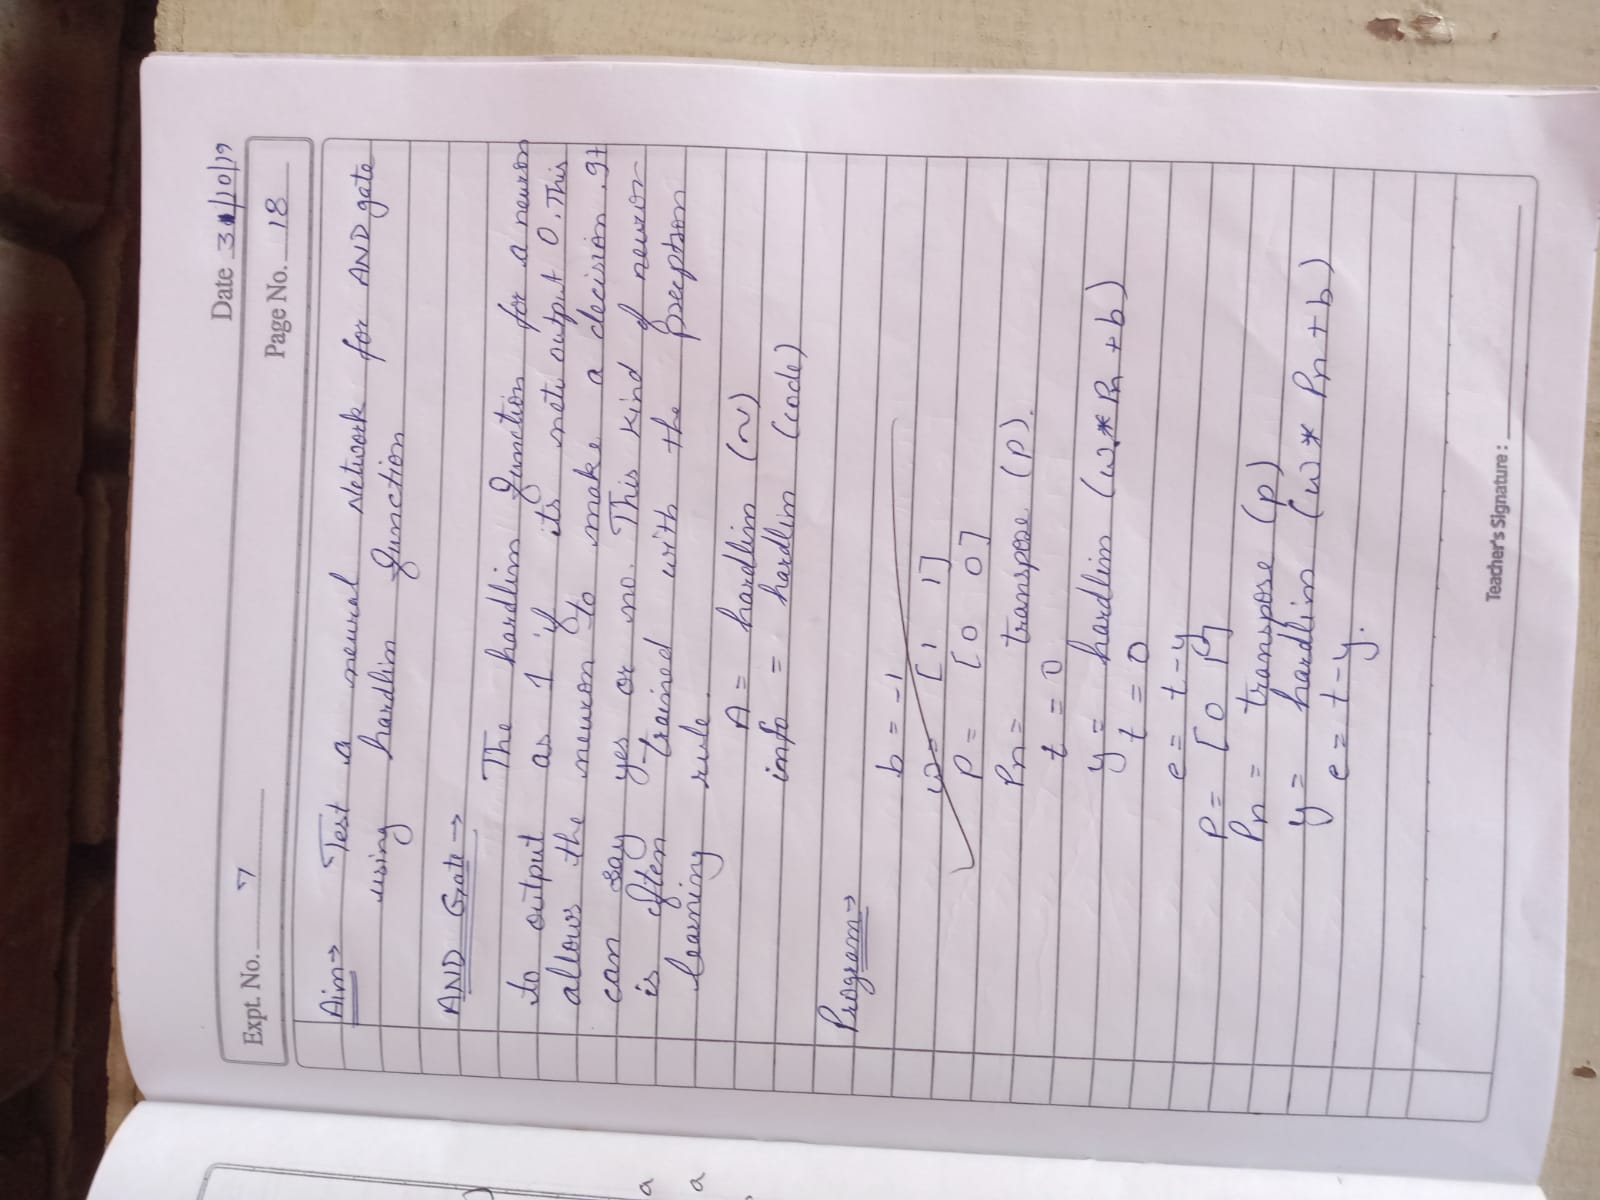 Date 31/10/19
Expt. No. 7
Page No. 18
Aim → Test a neural Network for AND gate
using hardlim function
AND Gate →
The hardlim function for a neuron
to output as 1 if its net output 0. This
allows the neuron to make a decision. It
can say yes or no. This kind of neuron
is often trained with the
learning rule.
A = hardlim (N)
info = hardlim (code)
Program →
b = -1
w = [1 1]
P = [0 0]
Pn = transpose (P).
t = 0
y = hardlim (w * Pn + b)
t = 0
e = t - y
P = [0 1]
Pn = transpose (p)
y = hardlim (w * Pn + b)
e = t - y.
Teacher's Signature :
a
a